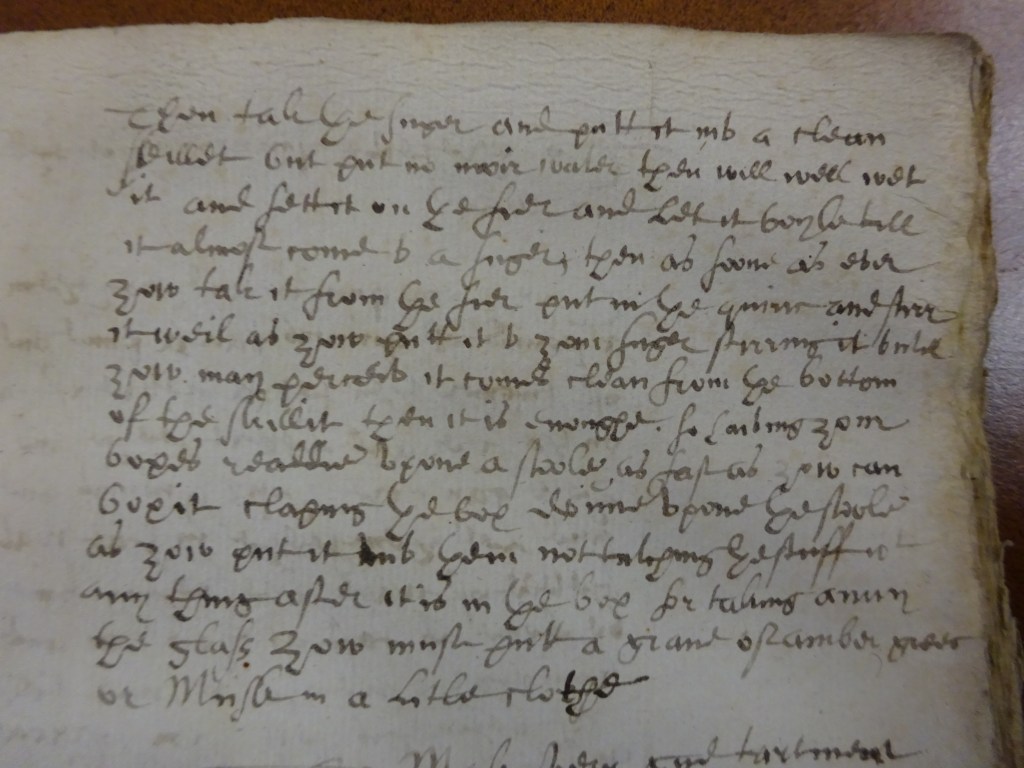 Then tak the suger and putt it into a clean
skillet but put no moir water then will well wet
it and sett it on the fier and Let it boyle till
it almost come to a suger, then as soone as ever
zow tak it from the fier put in the and stirr
it weil as zow putt it to zour suger stirring it untill
zow may perceiv it comes clean from the bottom
of the skillit then it is enoughe. so having zour
boxes readdie upone a stoole as fast as zow can
box it claping the box doune upone the stoole
as zow put it into them not tutching the stuff wt
any thing after it is in the box for taking away
the glass zow must putt a grane of amber grees
or Musk in a Litle clothe
and